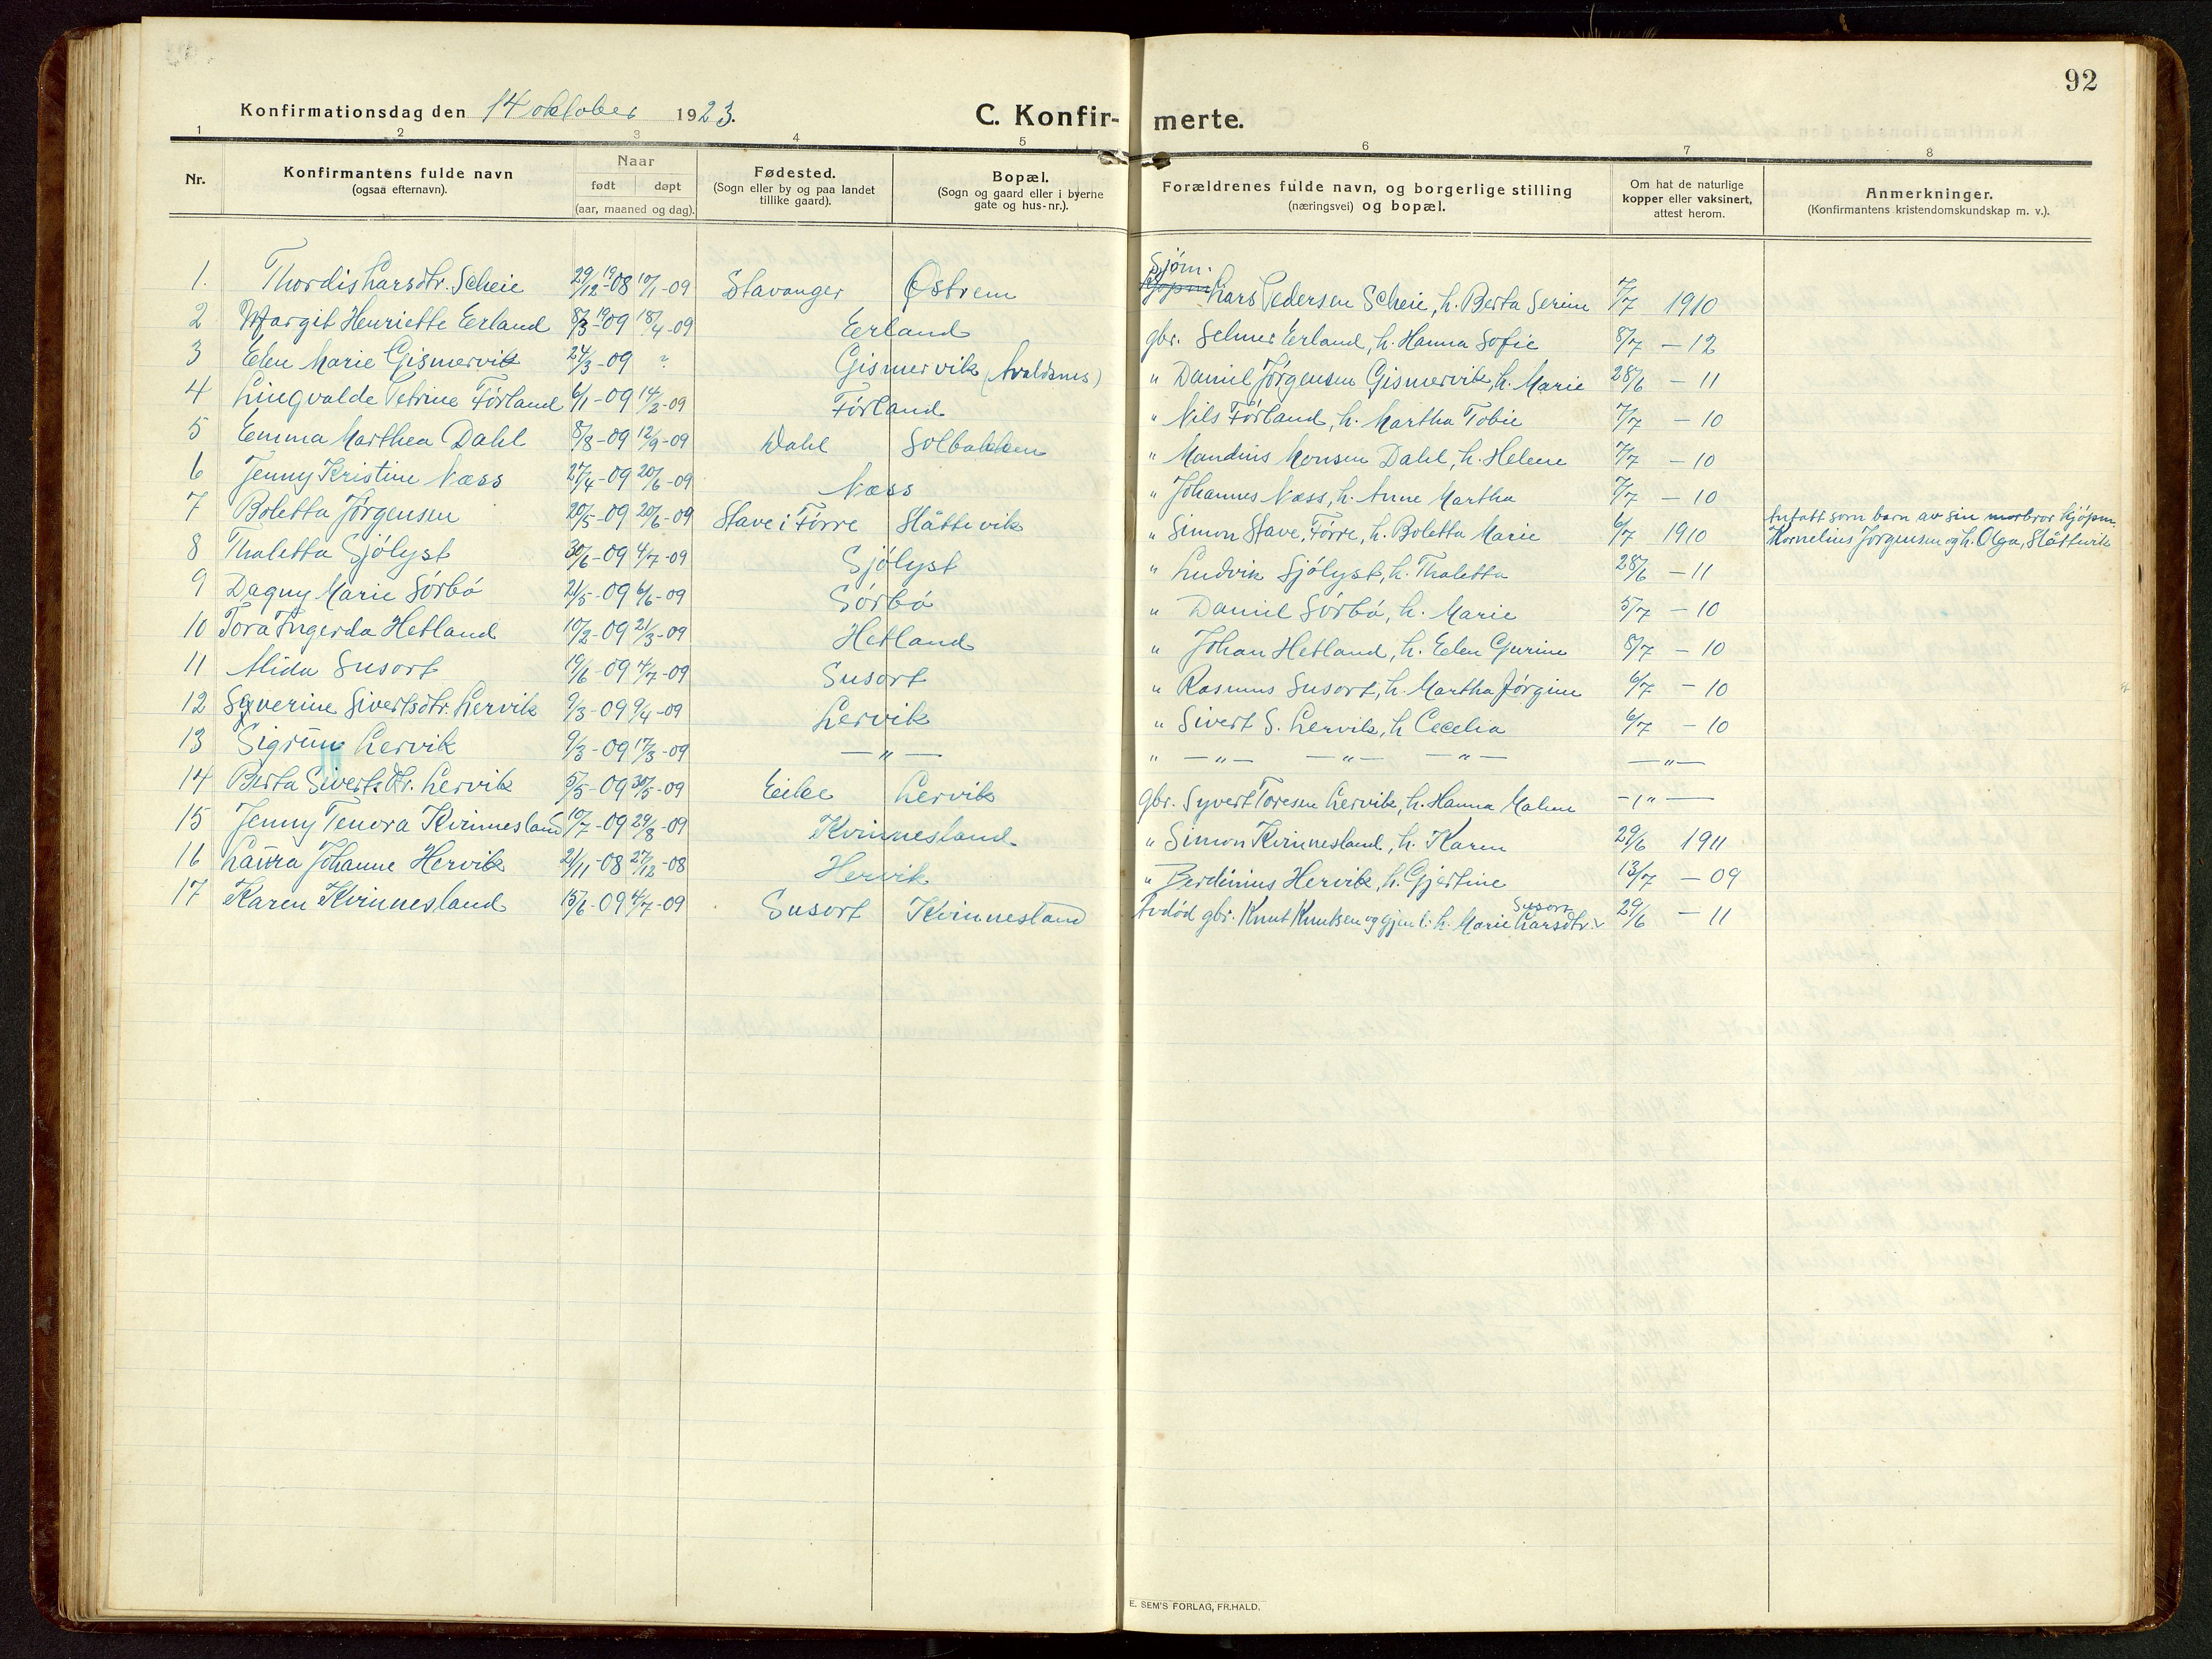 92
Konfirmationsdag den 14 oktober 1923.
C. Konfir- merte.
1 2 3 4 5 6 7 8
Nr. Konfirmantens fulde navn (ogsaa efternavn). Naar født døpt (aar, maaned og dag). Fødested. (Sogn eller by og paa landet tillike gaard). Bopæl. (Sogn og gaard eller i byerne gate og hus-nr.). Forældrenes fulde navn, og borgerlige stilling (næringsvei) og bopæl. Om hat de naturlige kopper eller vaksinert, attest herom. Anmerkninger. (Konfirmantens kristendomskundskap m. v.).
1. Thordis Larsdtr. Scheie 29/12 1908 10/1-09 Stavanger Østrem Sjøm. Lars Pedersen Scheie, h. Berta Serine 7/7 1910
2 Margit Henriette Eerland 8/3 1909 18/4-09 Eerland gbr. Selmer Eerland, h. Hanna Sofie 8/7 - 12
3 Elen Marie Gismervik 24/3-09 ? Gismervik (Avaldsnes) " Daniel Jørgensen Gismervik, h. Marie 28/6 - 11
4 Lingvalde Petrine Førland 6/1-09 14/2-09 Førland " Nils Førland, h. Martha Tobie 7/7 - 10
5 Emma Marthea Dahl 8/8-09 12/9-09 Dahl Solbakken " Mandius Monsen Dahl, h. Helene 7/7 - 10
6 Jenny Kristine Næss 27/4-09 20/6-09 Næss " Johannes Næss, h. Anne Martha 7/7 - 10
7 Boletta Jørgensen 20/5-09 20/6-09 Stave i Førre Slåttevik " Simon Stave, Førre, h. Boletta Marie 6/7 1910 Antatt som barn av sin morbror kjøpm. Kornelius Jørgensen og h. Olga, Slåttevik
8 Thaletta Sjølyst 30/6-09 4/7-09 Sjølyst " Ludvik Sjølyst, h. Thaletta 28/6 - 11
9 Dagny Marie Sørbø 21/5-09 6/6-09 Sørbø " Daniel Sørbø, h. Marie 5/7 - 10
10 Tora Ingerda Hetland 10/2-09 21/3-09 Hetland " Johan Hetland, h. Elen Gurine 8/7 - 10
11 Alida Susort 19/6-09 4/7-09 Susort " Rasmus Susort, h. Martha Jørgine 6/7 - 10
12 Syverine Sivertsdtr. Lervik 9/3-09 9/4-09 Lervik " Sivert S. Lervik, h. Cecelia 6/7 - 10
13 Sigrun Lervik 9/3-09 17/3-09 — " — " — " — — " — — " — — " —
14 Berta Sivertsdtr. Lervik 5/5-09 30/5-09 Eike Lervik gbr. Syvert Toresen Lervik, h. Hanna Malene — " —
15 Jenny Tenora Kvinnesland 10/7-09 29/8-09 Kvinnesland " Simon Kvinnesland, h. Karen 29/6 1911
16 Laura Johanne Hervik 21/11-08 27/12-08 Hervik " Berdinius Hervik, h. Gjertine 13/7 - 09
17 Karen Kvinnesland 15/6-09 4/7-09 Susort Kvinnesland Avdød gbr. Knut Knutsen og gjenl. h. Marie Larsdtr. Susort 29/6 - 11
E. SEM'S FORLAG, FR.HALD.